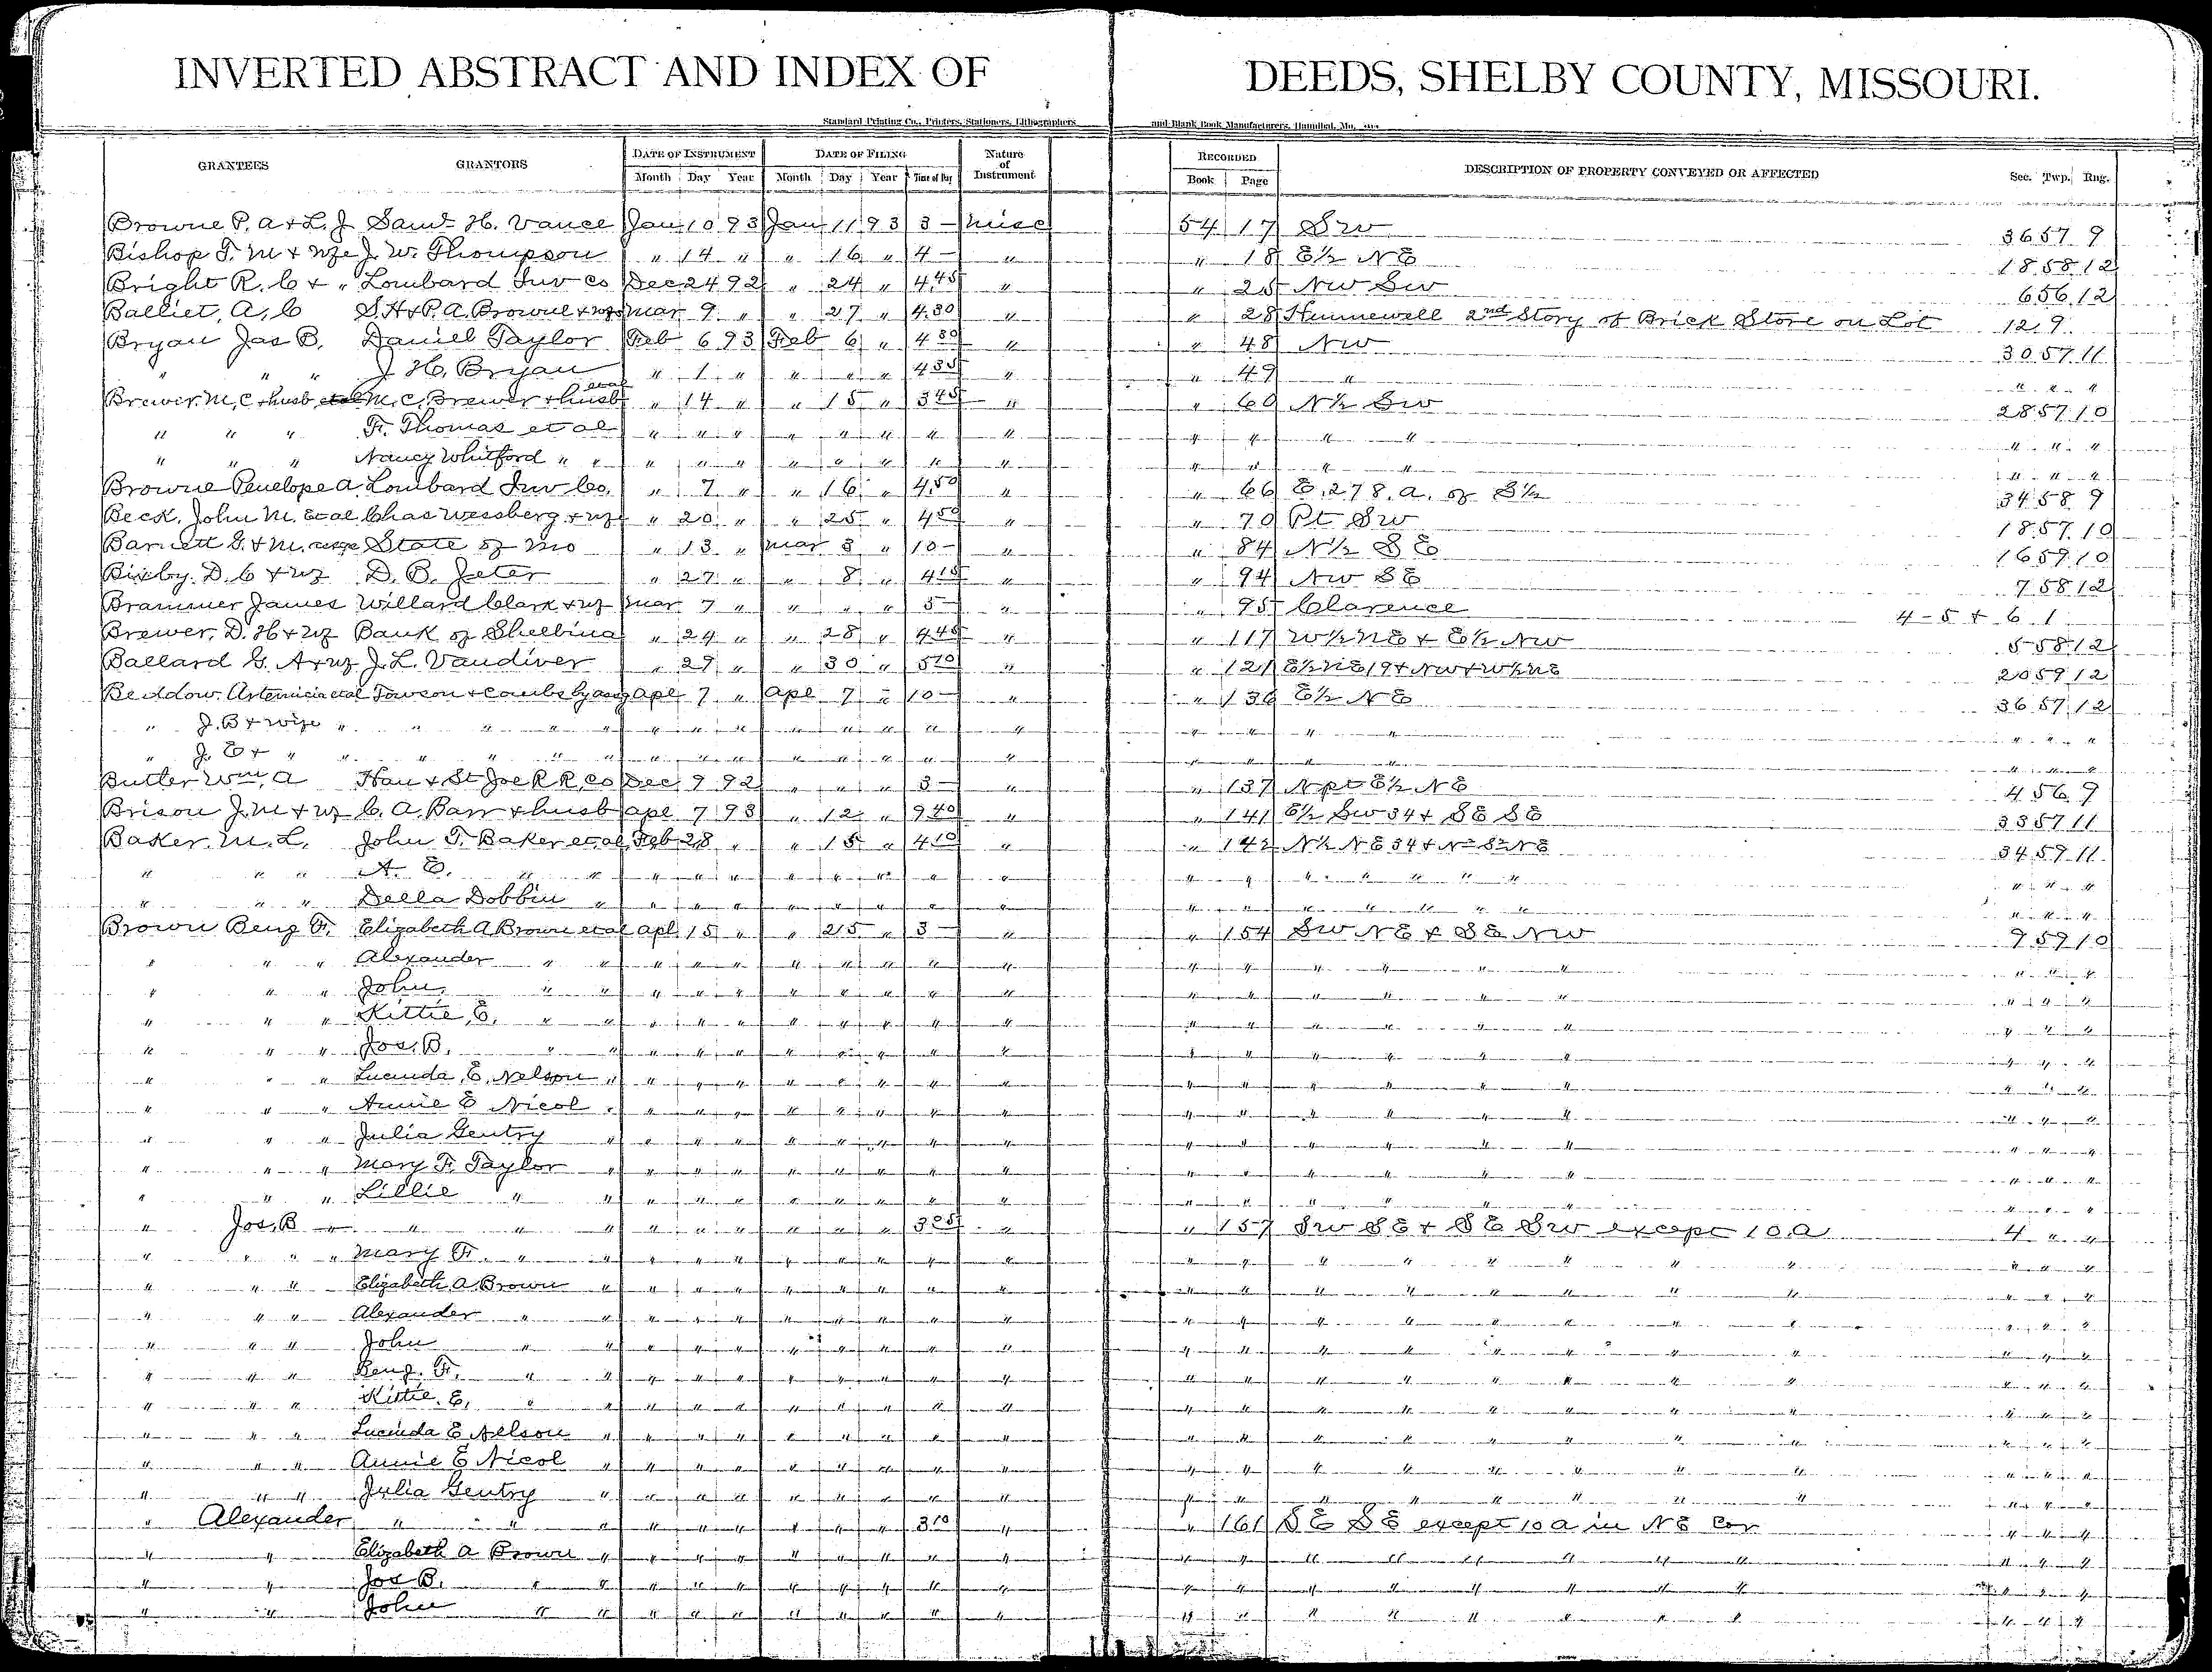 INVERTED ABSTRACT AND INDEX OF DEEDS, SHELBY COUNTY, MISSOURI.
Standard Printing Co., Printers, Stationers, Lithographers and Blank Book Manufacturers, Hannibal, Mo.
GRANTEES GRANTORS DATE OF INSTRUMENT DATE OF FILING Nature of Instrument RECORDED DESCRIPTION OF PROPERTY CONVEYED OR AFFECTED Sec. Twp. Rng.
Month Day Year Month Day Year Time of Day Book Page
Browne P. A & L. J Saml H. Vance Jan 10 93 Jan 11 93 3 - misc 54 17 SW 36 57 9
Bishop T. M & wife J. W. Thompson " 14 " " 16 " 4 - " " 18 E½ NE 18 58 12
Bright R. C & " Lombard Inv Co Dec 24 92 " 24 " 4 45 " " 25 NW SW 6 56 12
Balliet, A, C S. H & P. A. Browne & wife Mar 9 " " 27 " 4 30 " " 28 Hunnewell 2nd Story of Brick Store on Lot 12 9
Bryan Jas B. Daniel Taylor Feb 6 93 Feb 6 " 4 30 " " 48 NW 30 57 11
" " " J. H. Bryan " 1 " " " " 4 35 " " 49 " " " "
Brewer. M, C & husb M. C. Brewer & husb et al " 14 " " 15 " 3 45 " " 60 N½ SW 28 57 10
" " " F. Thomas et al " " " " " " " " " " " " " " "
" " " Nancy Whitford " " " " " " " " " " " " " " " " "
Browne Penelope A. Lombard Inv Co. " 7 " " 16 " 4 50 " " 66 E. 278. a. of S½ 34 58 9
Beck. John M. et al Chas Wessberg & wf " 20 " " 25 " 4 50 " " 70 Pt SW 18 57 10
Barnett G. & M. State of Mo " 13 " Mar 3 " 10 - " " 84 N½ SE 16 59 10
Bixby. D. C & wf D. B. Jeter " 27 " " 8 " 4 15 " " 94 NW SE 7 58 12
Brammer James Willard Clark & wf Mar 7 " " " " 5 - " " 95 Clarence 4 - 5 & 6 1
Brewer. D. H & wf Bank of Shelbina " 24 " " 28 " 4 45 " " 117 W½ NE & E½ NW 5 58 12
Ballard G. A & wf J. L. Vandiver " 29 " " 30 " 5 10 " " 121 E½ NE 19 & NW & W½ NE 20 59 12
Beddow. Artemicia et al Towson & Combs by assg Apl 7 " Apl 7 " 10 - " " 136 E½ NE 36 57 12
" J. B & wife " " " " " " " " " " " " " " " " " " " "
" J. E & " " " " " " " " " " " " " " " " " " " " "
Butler Wm. A Han & St Joe R. R. Co Dec 9 92 " " " 3 - " " 137 N pt E½ NE 4 56 9
Brison J. M & wf C. A. Barr & husb Apl 7 93 " 12 " 9 40 " " 141 E½ SW 34 & SE SE 33 57 11
Baker. M. L. John T. Baker et al Feb 28 " " 15 " 4 10 " " 142 N½ NE 34 & 34 59 11
" " " A. E. " " " " " " " " " " " " " " " " " " " "
" " " Della Dobbin " " " " " " " " " " " " " " " " " "
Brown Benj F. Elizabeth A Brown et al Apl 15 " " 25 " 3 - " " 154 SW NE & SE NW 9 59 10
" " " Alexander " " " " " " " " " " " " " " " " " " "
" " " John, " " " " " " " " " " " " " " " " " " "
" " " Kittie, E, " " " " " " " " " " " " " " " " " " "
" " " Jos. B. " " " " " " " " " " " " " " " " " " "
" " " Lucinda, E. Nelson " " " " " " " " " " " " " " " " " "
" " " Annie E Nicol " " " " " " " " " " " " " " " " " "
" " " Julia Gentry " " " " " " " " " " " " " " " " " "
" " " Mary F. Taylor " " " " " " " " " " " " " " " " " "
" " " Lillie " " " " " " " " " " " " " " " " " " "
" Jos, B " " " " " " " " " " 3 05 " " 157 SW SE & SE SW except 10. a 4 " "
" " " " Mary F. " " " " " " " " " " " " " " " " " " " "
" " " Elizabeth A Brown " " " " " " " " " " " " " " " " " " "
" " " Alexander " " " " " " " " " " " " " " " " " " " "
" " " John " " " " " " " " " " " " " " " " " " " "
" " " Benj. F. " " " " " " " " " " " " " " " " " " " "
" " " Kittie. E, " " " " " " " " " " " " " " " " " " " "
" " " Lucinda E Nelson " " " " " " " " " " " " " " " " " " "
" " " Annie E Nicol " " " " " " " " " " " " " " " " " " "
" " " Julia Gentry " " " " " " " " " " " " " " " " " " "
" Alexander " " " " " " " " " 3 10 " " 161 SE SE except 10 a in NE Cor " " "
" " Elizabeth A Brown " " " " " " " " " " " " " " " " " " "
" " Jos B. " " " " " " " " " " " " " " " " " " " "
" " John " " " " " " " " " " " " " " " " " " " "